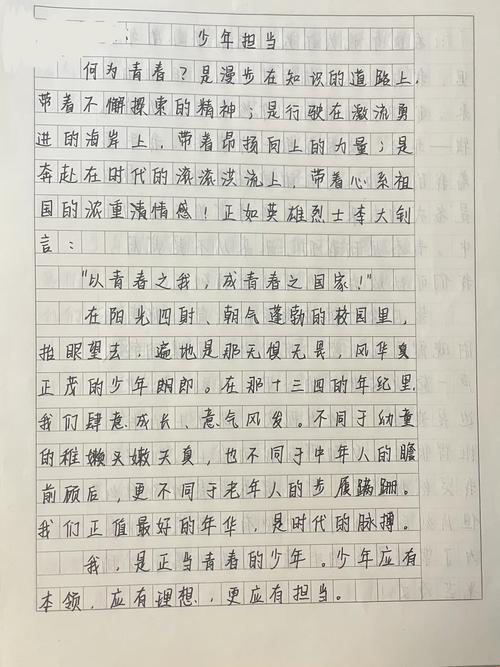 少年担当
何为青春？是漫步在知识的道路上，
带着不懈探索的精神；是行驶在激流勇
进的海岸上，带着昂扬向上的力量；是
奔赴在时代的滚滚洪流上，带着心系祖
国的浓重清情感！正如英雄烈士李大钊
言：
“以青春之我，成青春之国家！”
在阳光四射、朝气蓬勃的校园里，
抬眼望去，遍地是那无惧无畏，风华
正茂的少年朗郎。在那十三四的年纪里
我们肆意成长、意气风发。不同于幼童
的稚嫩天真，也不同于中年人的瞻
前顾后，更不同于老年人的步履蹒跚。
我们正值最好的年华，是时代的脉搏。
我，是正当青春的少年。少年应有
本领，应有理想，更应有担当。